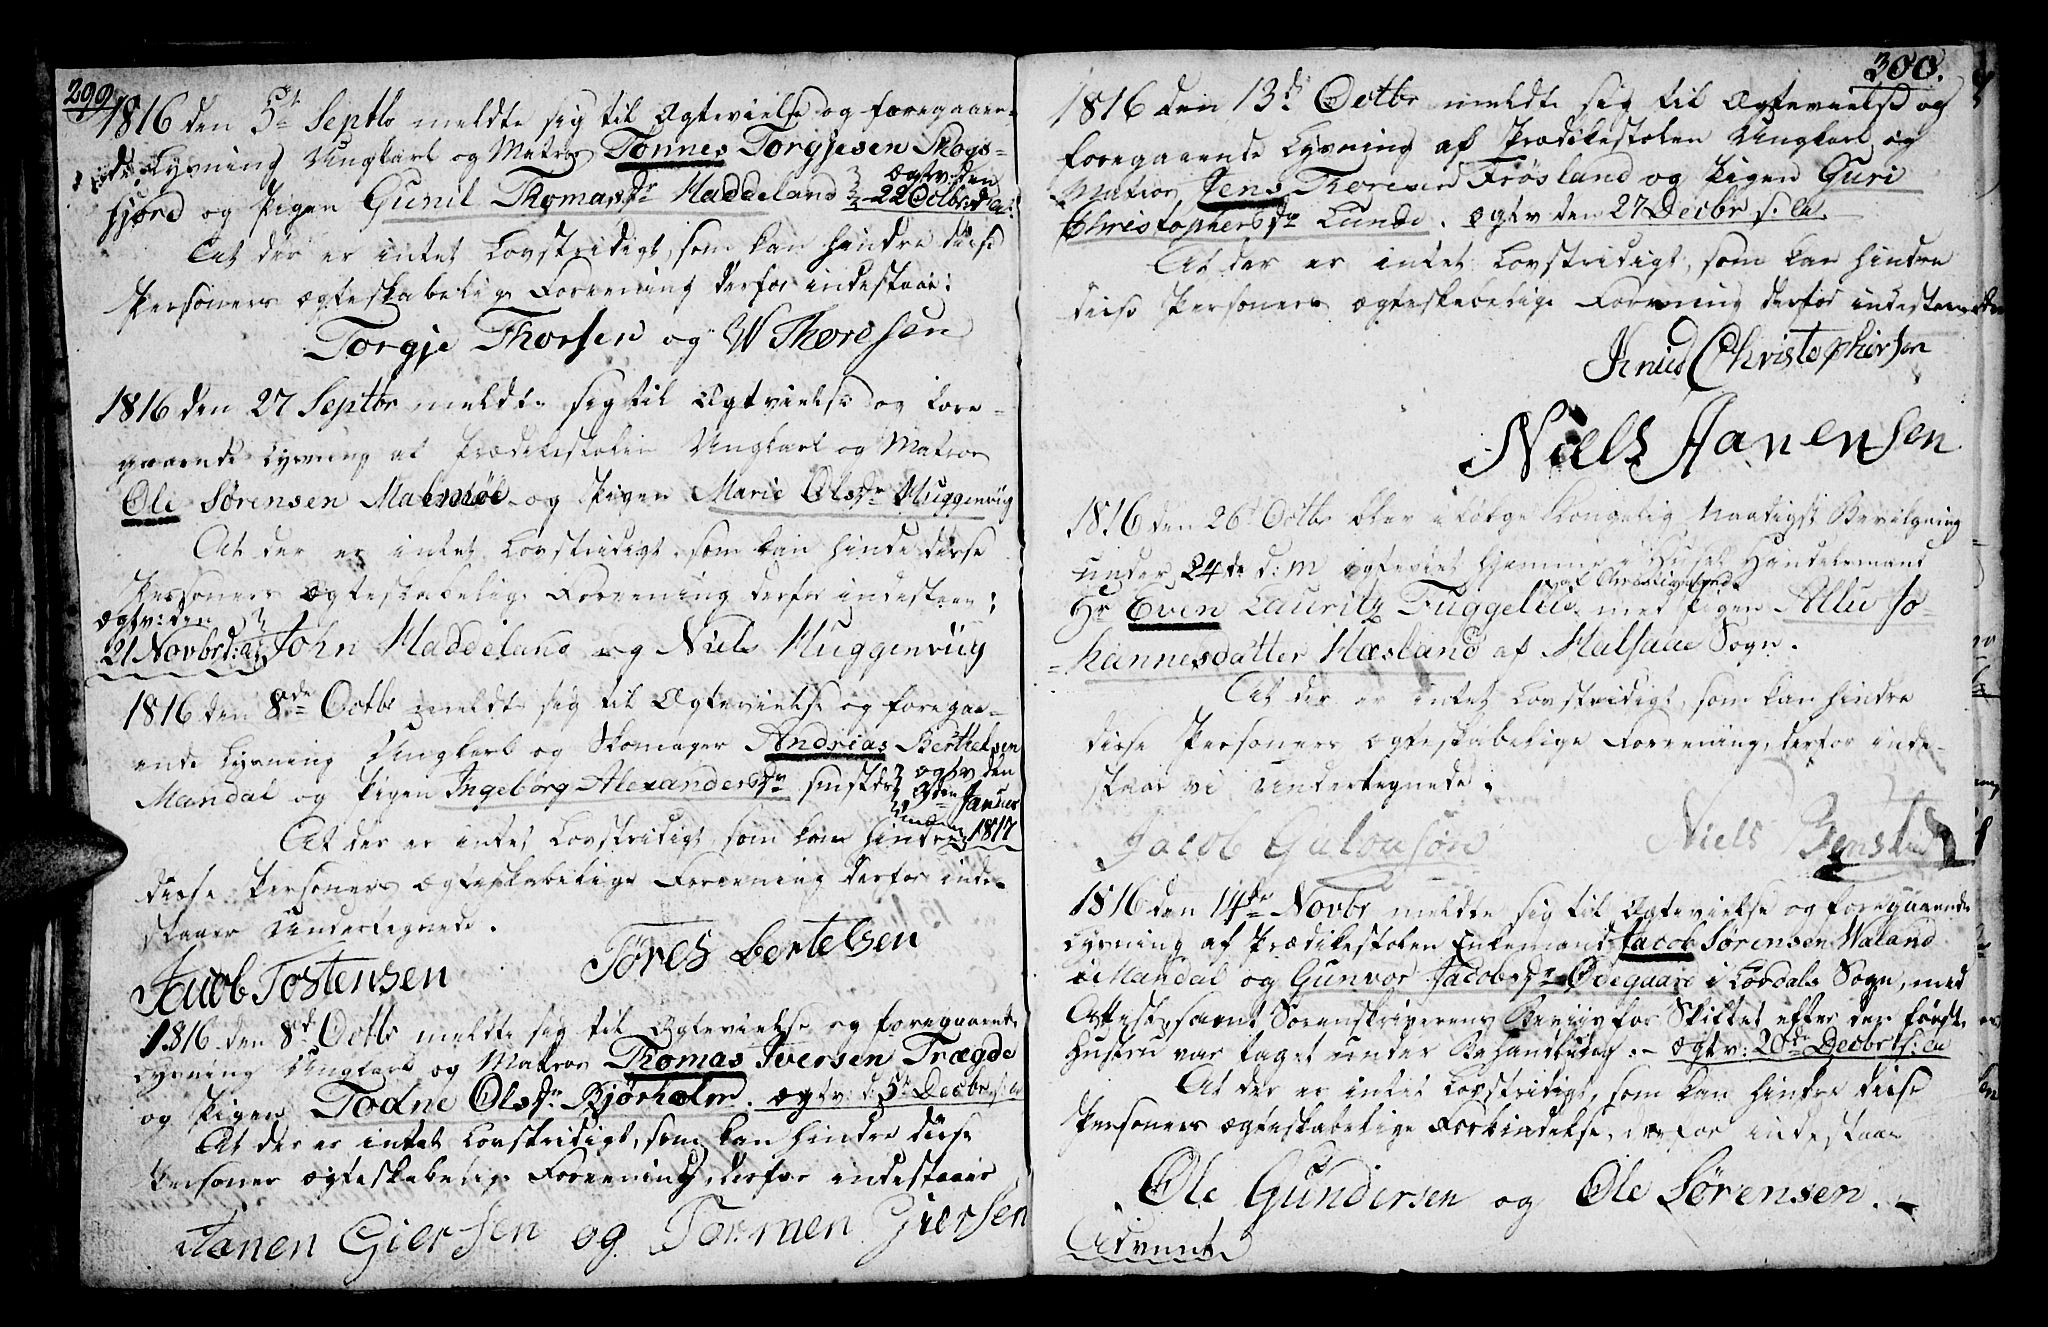 299
1816 den 5te Septbr meldte sig til Ægtevielse og foregaaen-
de Lysning Ungkarl og Matros Tønnes Torgjesen Skogs-
fjord og Pigen Gunil Thomasdr Haddeland ægtv: den
22 Octbr d: a:
At der er intet Lovstridigt, som kan hindre disse
Personers ægteskabelige Foreening derfor indestaae:
Torgje Thorsen og W Thoresen
1816 den 27 Septbr meldte sig til Ægtevielse og fore-
gaaende Lysning af Prædikestolen Ungkarl og Matros
Ole Sørensen Malmöe og Pigen Marie Olsdr Huggenviig
At der er intet Lovstridigt som kan hindre disse
Personers Ægteskabelige Foreening derfor indestaae:
Ægtv: den
21 Novbr d: a: John Haddeland og Niels Huggenviig
1816 den 8de Octbr meldte sig til Ægtevielse og foregaa-
ende Lysning Ungkarl og Skomager Andreas Berthelsen
Mandal og Pigen Ingebörg Alexandersdr ægtv den
Januar
At der er intet Lovstridigt som kan hindre 1817
disse Personers Ægteskabelige Foreening derfor inde-
staaer Undertegnede.
Jacob Tostensen Töres bertelsen
1816 den 8de Octbr meldte sig til Ægtevielse og foregaaende
Lysning Ungkarl og Matros Thomas Iversen Trægde
og Pigen Todne Olsdr Bjørholm. ægtv: d: 5te Decbr s: a
At der er intet Lovstridigt, som kan hindre disse
Personer ægteskabelig Foreening, derfor indestaaer
Tanen Giersen og Tormen Giersen
300.
1816 den 13de Octbr meldte sig til Ægtevielse og
foregaaende Lysning af Prædikestolen Ungkarl og
Matros Jens Thoresen Frösland og Pigen Guri
Christophersdr Lunde. ægtv den 27 Decbr s: a.
At der er intet Lovstridigt, som kan hindre
disse Personers ægteskabelige Foreening derfor indestaae
Knud Christophersen
Niels Hanensen
1816 den 26de Octbr blev i følge Kongelig Naadigst Bevilgning
under 24de d: m ægteviet hjemme i Huset Handelsmand
Hr Even Lauritz Fuggellie med Pigen Allu Jo-
hannesdatter Hæsland af Halsaae Sogn.
At der er intet Lovstridigt, som kan hindre
disse Personers ægteskabelige Foreening, derfor inde-
staae vi Undertegnede.
Jacob Gulousøn Niels Benstad
1816 den 14de Novbr meldte sig til Ægtevielse og foregaaende
Lysning af Prædikestolen Enkemand Jacob Sørensen Waland
i Mandal og Gunvor Jacobsdr Ødegaard i Løvdals Sogn, med
Attest, samt Sorenskriverens Beviis for Skiftet efter den første
Hustru var taget under Behandling. - ægtv: 20de Decbr s: a
At der er intet Lovstridigt, som kan hindre disse
Personers ægteskabelige Forbindelse, derfor indestaae
Ole Gundersen og Ole Sørensen.
Advent